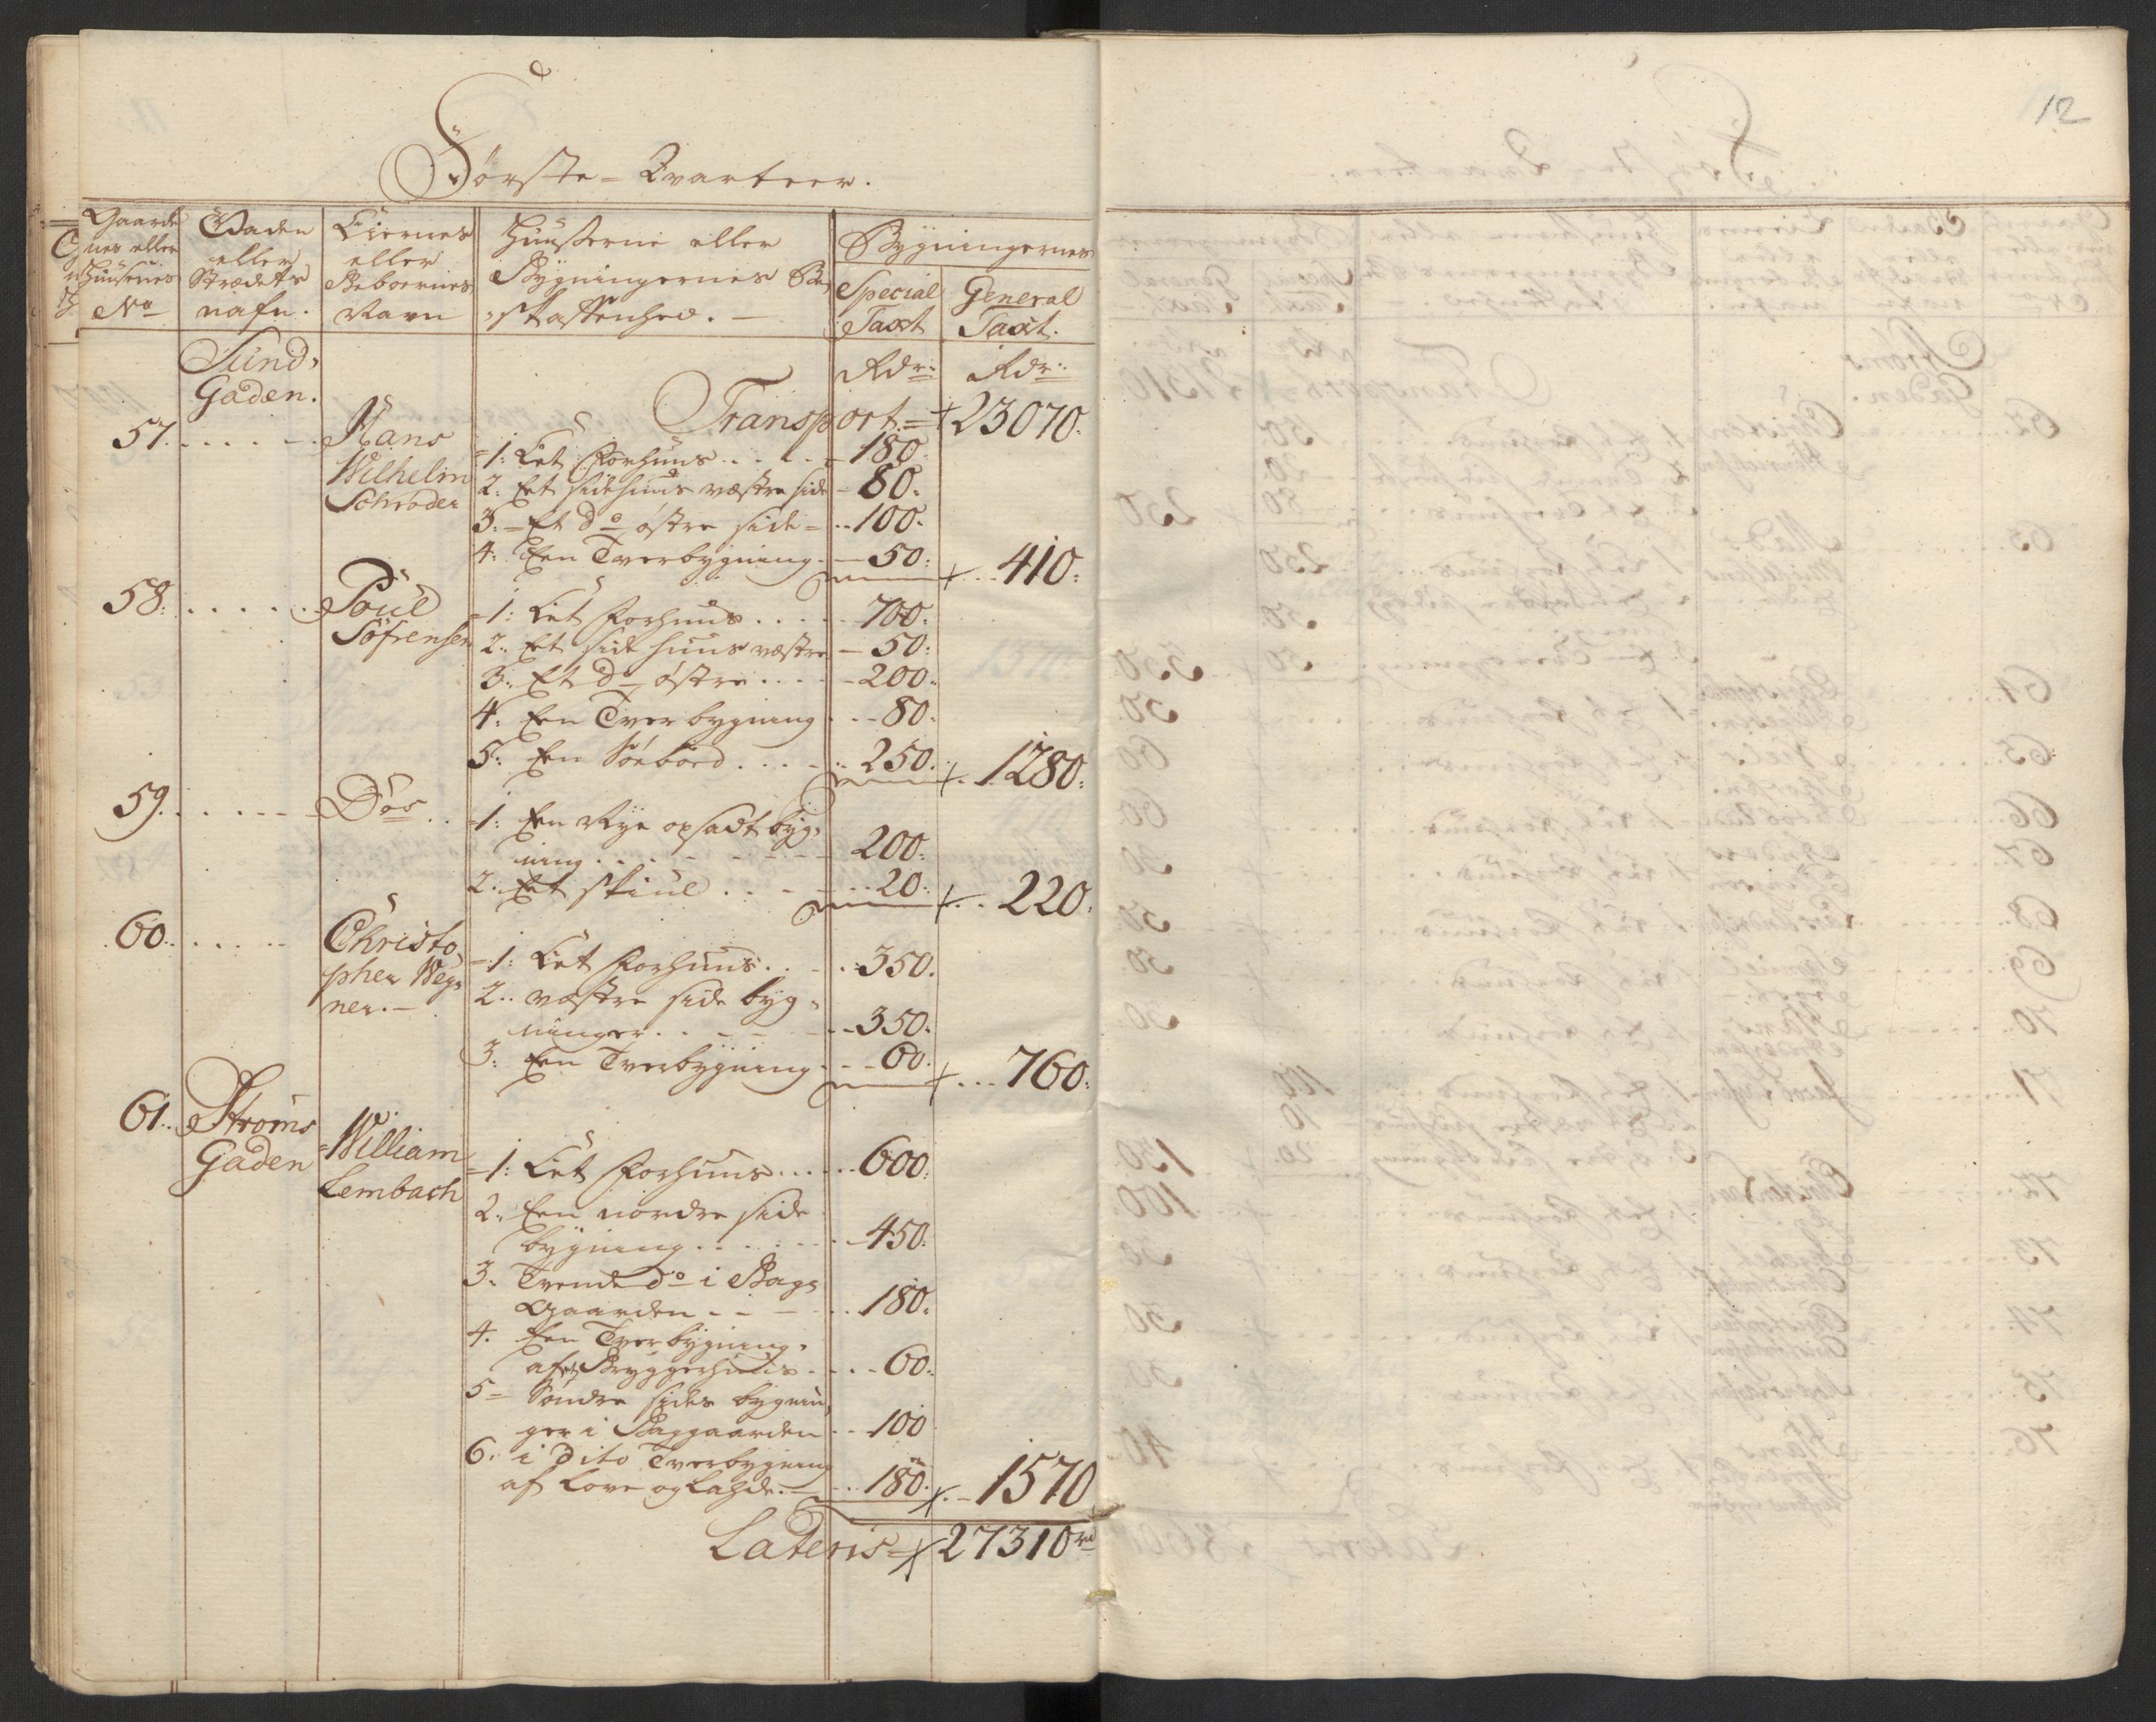 12
Første = Qvarteer.
Gaarde
nes eller
Huusenes
No
Gaden
eller
Strædets
nafn.
Eiernes
eller
Beboernes
Navn
Huuserne eller
Bygningernes Be,
skaffenhed. —
Bygningernes
Special
Taxt
General
Taxt.
Sund,
Gaden.
Rdr: Rdr:
Transport = 23070.
57. Hans
Wilhelm
Schrøder
1: Eet Forhuus.... 180.
2: Eet sidehuus væstre side — 80.
3. — Et do østre side = .. 100.
4: Een Tverbygning. — 50: 410:
58. Poul
Söfrensen
1: Eet Forhuus.... 700.
2: Et side huus væstre — 50:
3. Et do østre.... 200.
4. Een Tverbygning .. 80.
5. Een Söeboed.... 250. 1280.
59. Dos..
1: Een Nye opsadt byg,
ning...... 200.
2. Eet skiul.... 20. 220.
60. Christo,
pher Weg,
ner. —
1: Eet Forhuus... 350.
2. væstre side byg,
ninger.. 350.
3. Een Tverbygning .. 60. 760.
61. Stroms
Gaden
William
Lembach
1: Eet Forhuus..... 600.
2. Een nordre side
bygning...... 450.
3. Tvende do i Bag,
Gaarden.... 180.
4. Een Tverbygning.
af Bryggerhuus.... 60.
5 = Søndre sides bygnin,
ger i Baggaarden .. 100
6. i Dito Tverbygning
af Love og Lahde. .. 180. 1570
Lateris = 27310